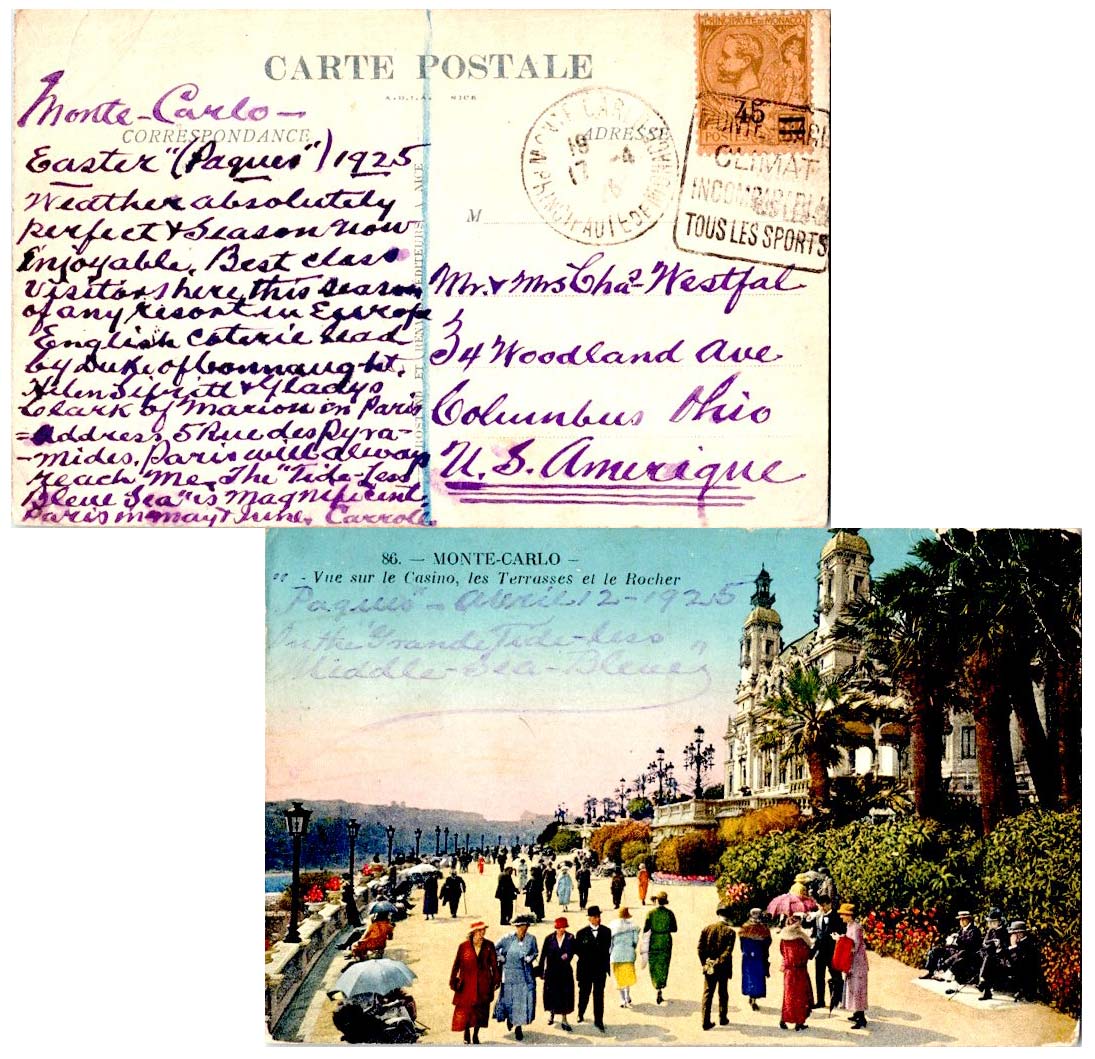 CARTE POSTALE
A.D.I.A. NICE
CORRESPONDANCE
ADRESSE
PRINCIPAUTÉ DE MONACO
45
MONTE-CARLO
PRINCIPAUTÉ DE MONACO
CLIMAT
INCOMPARABLE
TOUS LES SPORTS
Monte-Carlo-
Easter "(Paques") 1925
Weather absolutely
perfect & Season now
Enjoyable. Best class
visitors here this season
of any resort in Europe
English coterie head
by Duke of Connaught.
Helen Sifritt & Gladys
Clark of Marion in Paris
=Address 5 Rue des Pyra-
-mides. Paris will always
reach me. The "Tide-Less
Bleue Sea" is Magnificent
Paris in may & June. Carroll
M
Mr. & Mrs Chas Westfal
34 Woodland Ave
Columbus Ohio
U.S. Amerique
86. — MONTE-CARLO -
- Vue sur le Casino, les Terrasses et le Rocher
"Paques" - April 12 - 1925
On the "Grande Tide-Less
Middle-Sea-Bleue"